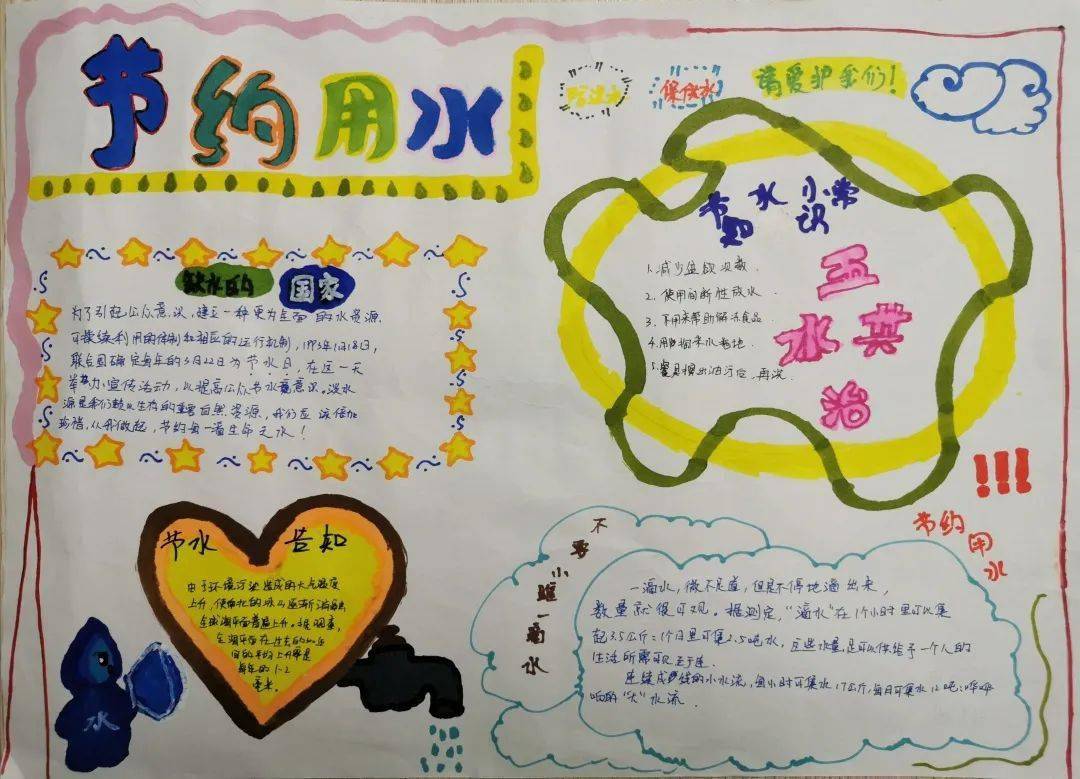 节约用水
防洪水
保供水
请爱护我们！
缺水的
国家
为了引起公众意识，建立一种更为全面的水资源
可持续利用的体制和相应的运行机制，1993年1月18日，
联合国确定每年的3月22日为节水日，在这一天
举办宣传活动，以提高公众节水意识。淡水
源是我们赖以生存的重要自然资源，我们应该倍加
珍惜，从我做起，节约每一滴生命之水！
节水小常
知识
1.减少盆欲次数.
2.使用间断性放水.
3.不用来帮助解冻食品
4.用
5.
五水共治
!!!
节约用水
节水告知
由于环境污染造成的大气温度
上升，使南北的冰山逐渐消融，
全球海平面普遍上升。据观察，
全海平面在过去的
每年的1-2
毫米。
水
不要小瞧一滴水
一滴水，微不足道，但是不停地滴出来，
数量就很可观。据测定，“滴水”在1个小时里可以集
起3.5公斤；1个月里可集2.5吨水，这些水量，足可以供给予一个人的
生活所需
连续成线的小水流，每小时可集水17公斤，每月可集水12吨；哗哗
响的“大”水流.